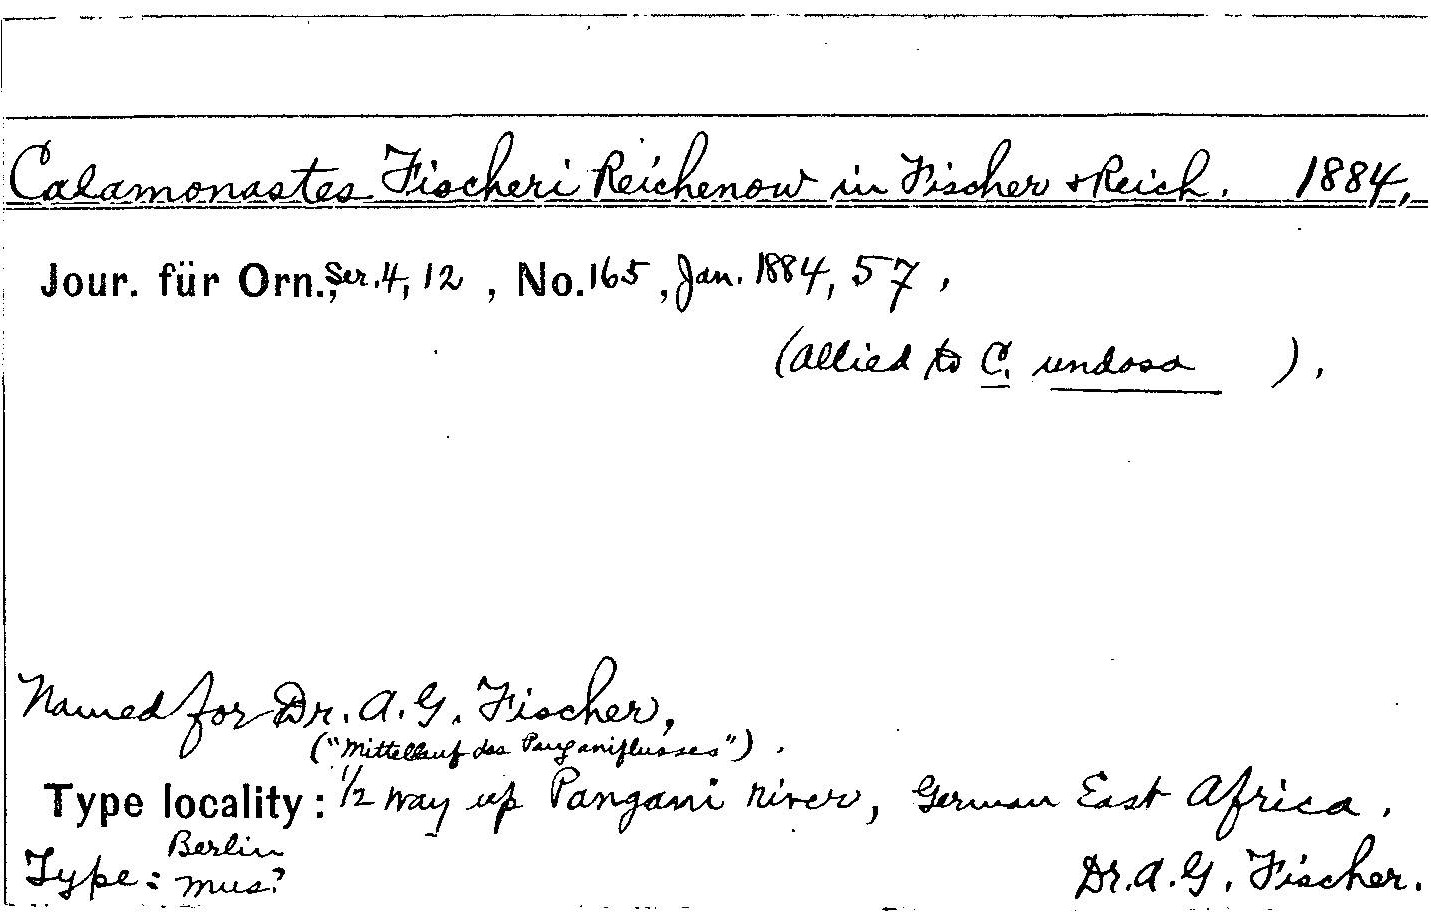 Calamonastes Fischeri Reichenow in Fischer & Reich. 1884,
Jour. für Orn., Ser. 4, 12, No. 165, Jan. 1884, 57,
(allied to C. undosa ).
Named for Dr. A. G. Fischer,
("Mittellauf des Panganiflusses").
Type locality: 1/2 way up Pangani river, German East Africa.
Berlin
Type: Mus? Dr. A. G. Fischer.